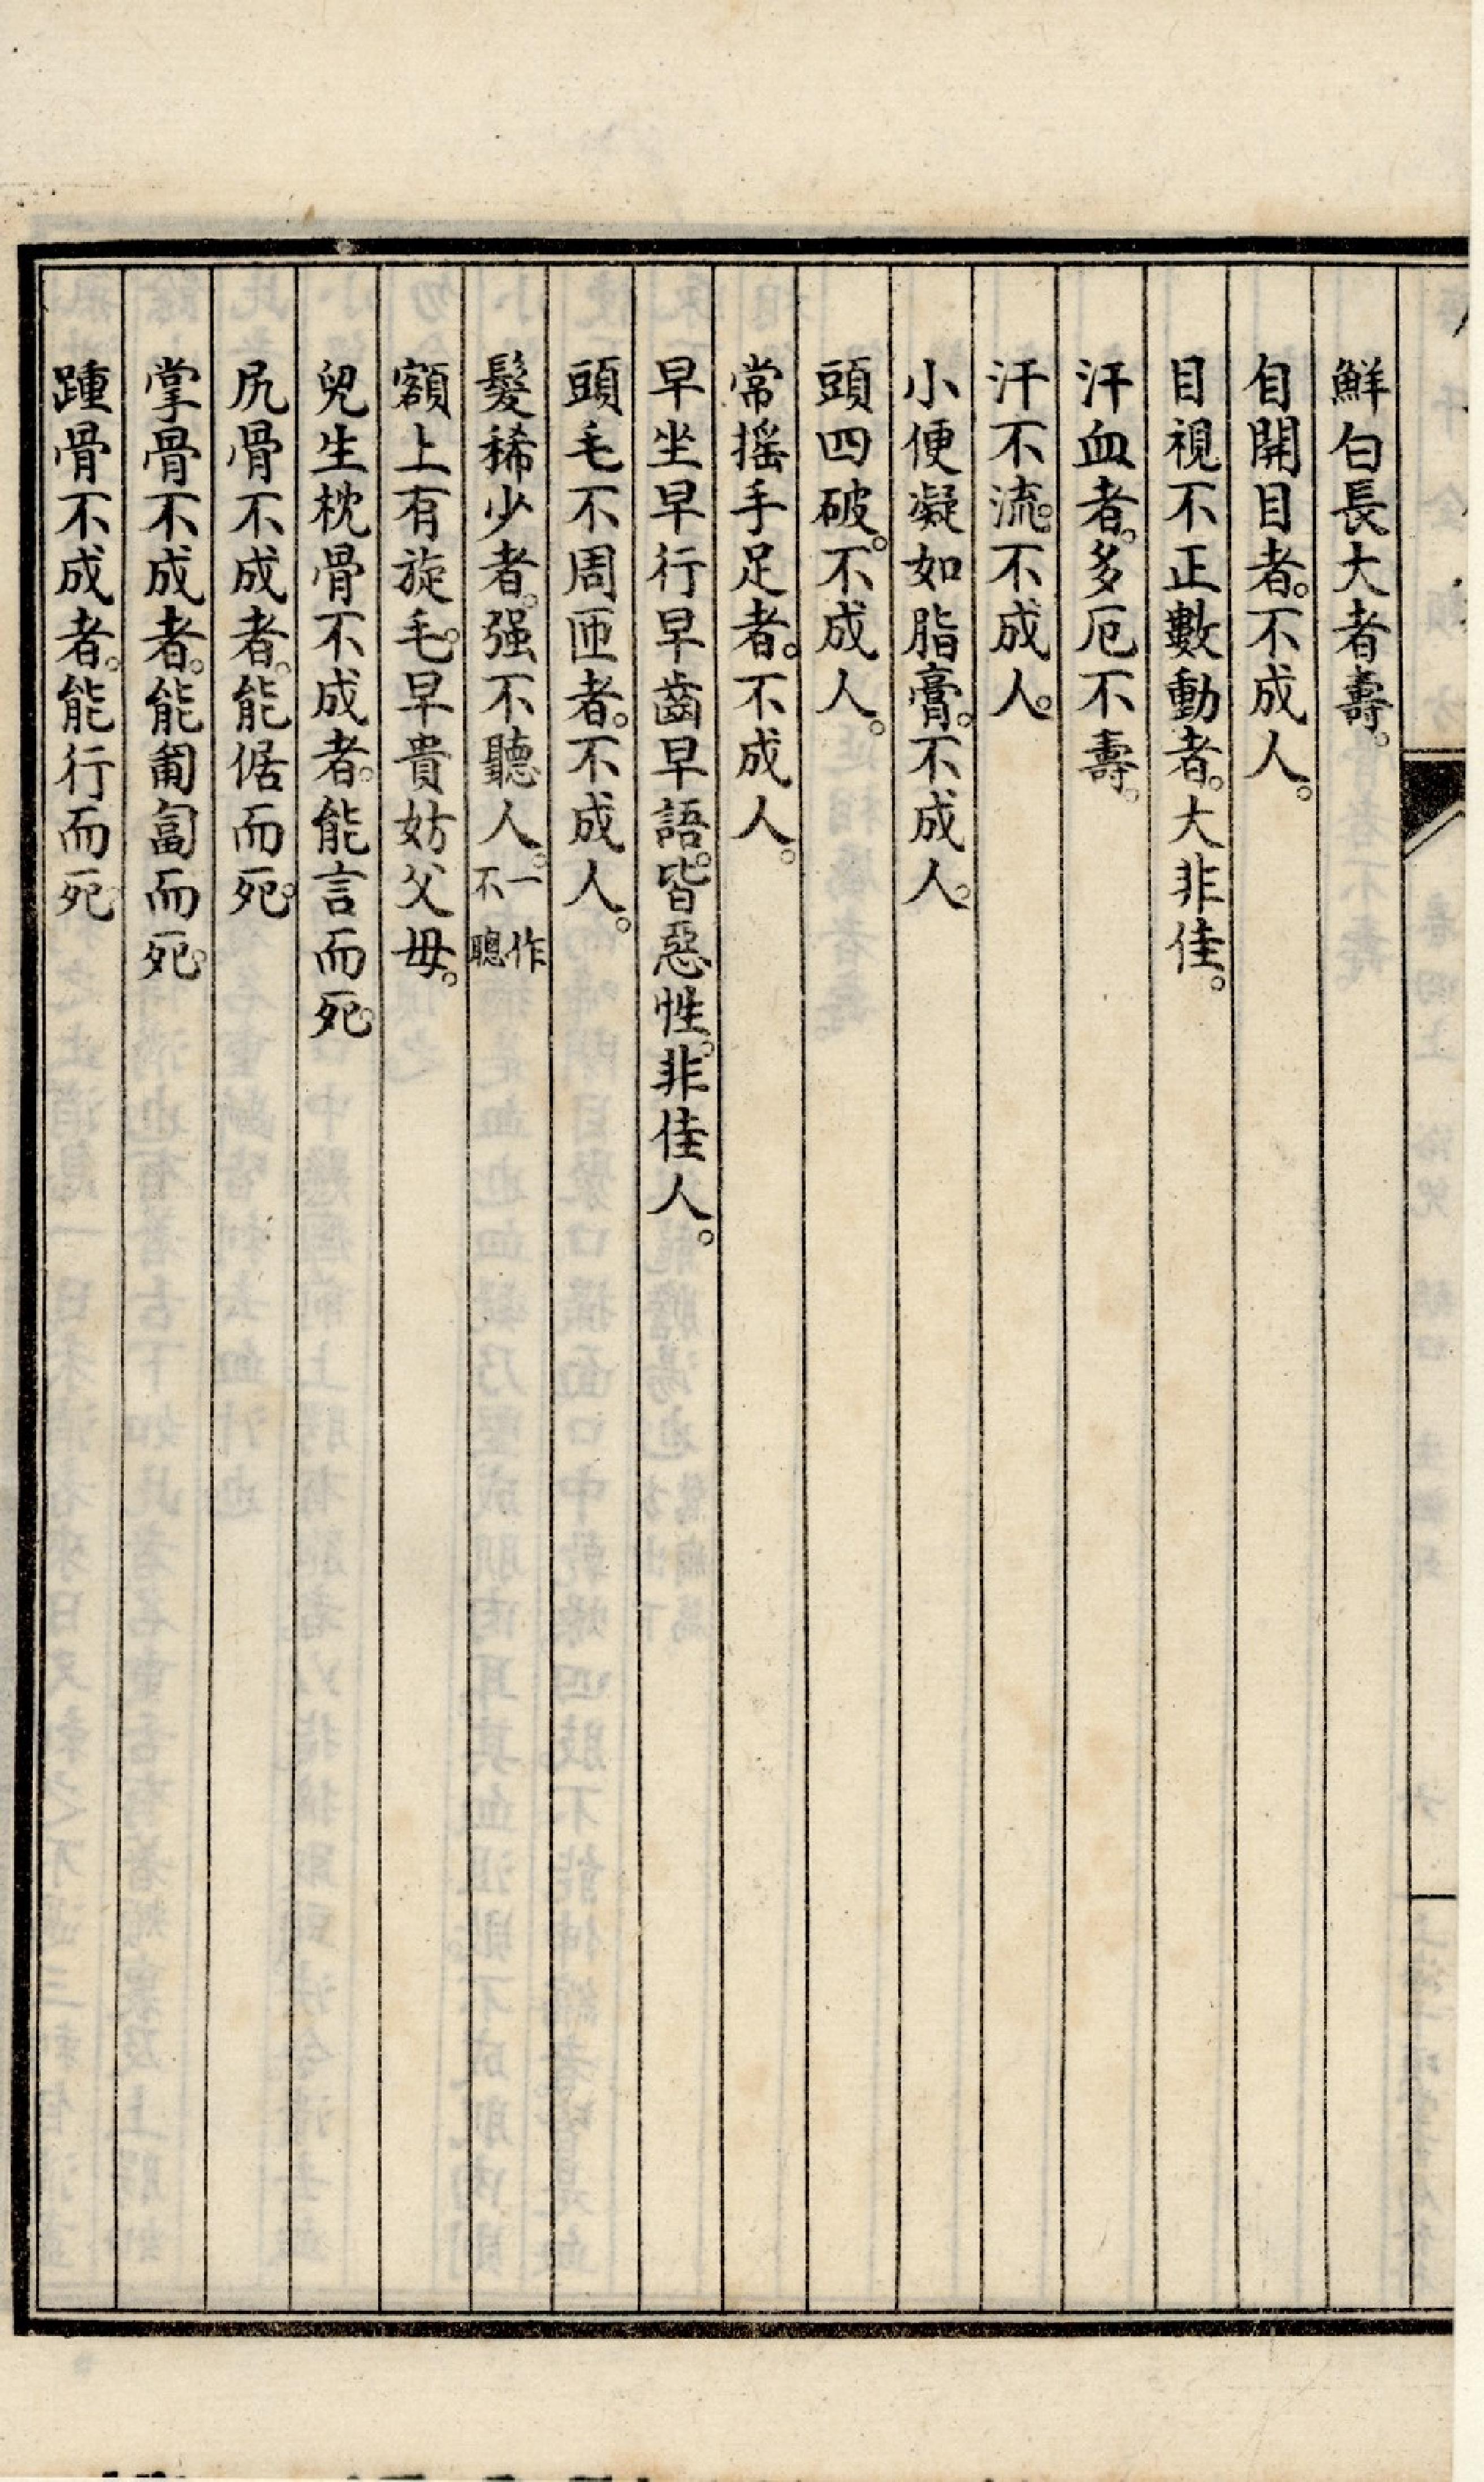 鮮白長大者壽。
自開目者。不成人。
目視不正數動者。大非佳。
汗血者。多厄不壽。
汗不流。不成人。
小便凝如脂膏。不成人。
頭四破。不成人。
常搖手足者。不成人。
早坐早行早齒早語。皆惡性。非佳人。
頭毛不周匝者。不成人。
髮稀少者。强不聽人。一作不聰
額上有旋毛。早貴妨父母。
兒生枕骨不成者。能言而死。
尻骨不成者。能倨而死。
掌骨不成者。能匍匐而死。
踵骨不成者。能行而死。